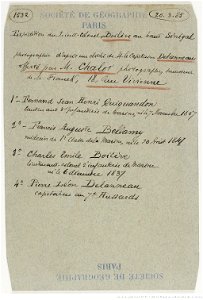 1532
SOCIÉTÉ DE GÉOGRAPHIE
PARIS
20.3.85
Expédition du Lieut-Colonel Boilève au Haut Sénégal
photographies d'après un cliché de M. le Capitaine Delanneau
offert par M. Chalot photographe, successeur
de Franck, 18 Rue Vivienne.
1° Fernand Jean Henri Quiquandon
lieutenant d'Infanterie de marine, né le 7 novembre 1857
2° Francis Auguste
médecin de 1re classe de la marine, né le 20 Août 1847
3° Charles Emile Boilève
lieutenant-colonel d'infanterie de marine
né le 6 décembre 1837
4° Pierre Léon Delanneau
capitaine au 7e Hussards
PARIS
SOCIÉTÉ DE GÉOGRAPHIE